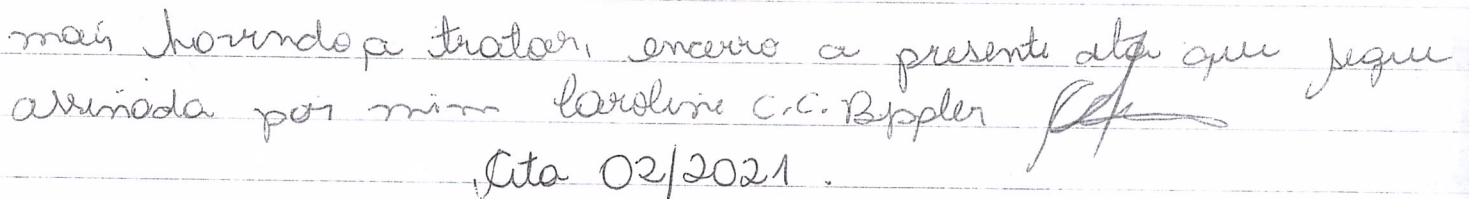 mais havendo a tratar, encerro a presente ata que segue
assinada por mim Caroline C.C. Bppler
Ata 02/2021.